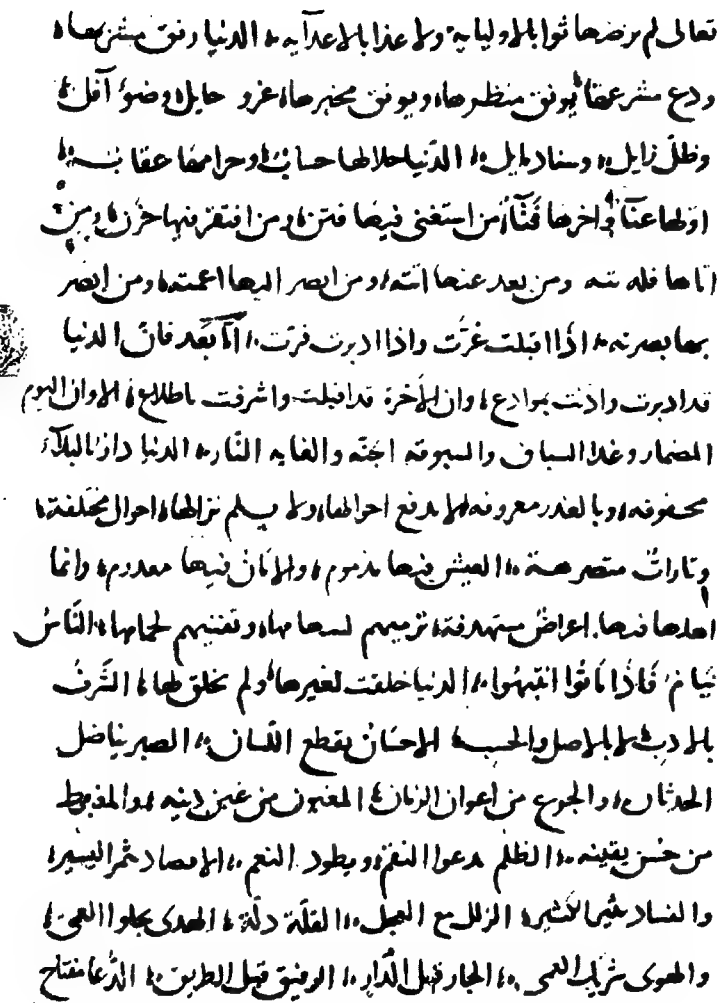 تعالى لم يرضها ثوابا لاوليايه ولا عذابا لاعدآيه الدنيا رنق مشربها
ردغ مشرعها يونق منظرها ويوبق مخبرها غرور حايل وضوء آفل
وظل زايل وسناد مايل الدنيا حلالها حساب وحرامها عقاب
اولها عنآ واخرها فنآ من استغنى فيها فتن ومن افتقر فيها حزن ومن
اتاها فاتته ومن بعد عنها اتته ومن ابصر اليها اعمته ومن ابصر
بها بصرته اذا اقبلت غرت واذا ادبرت ضرت اما بعد فان الدنيا
قد ادبرت واذنت بوداع وان الاخرة قد اقبلت واشرفت باطلاع الا وان اليوم
المضمار وغدا السباق والسبقة الجنه والغايه النار الدنيا دار بالبلآء
محفوفه وبالغدر معروفه لا يدوم احوالها ولا يسلم نزالها احوال مختلفة
وتارات متصرفة العيش فيها مذموم والامان فيها معدوم وانما
اهلها فيها اغراض مستهدفة ترميهم بسهامها وتفنيهم بحمامها الناس
نيام فاذا ماتوا انتبهوا الدنيا خلقت لغيرها ولم تخلق لها الشرف
بالادب لا بالاصل والحسب الاحسان يقطع اللسان الصبر يناضل
الحدثان والجزع من اعوان الزمان المغبون من غبن دينه والمغبوط
من حسن يقينه الظلم يدعوا النقم ويطرد النعم الاقتصاد يثمر اليسير
والفساد يبير الكثير الزلل مع العجل القلة ذلة الهدى يجلوا العمى
والهوى شريك العمى الجار قبل الدار الرفيق قبل الطريق الدعا مفتاح